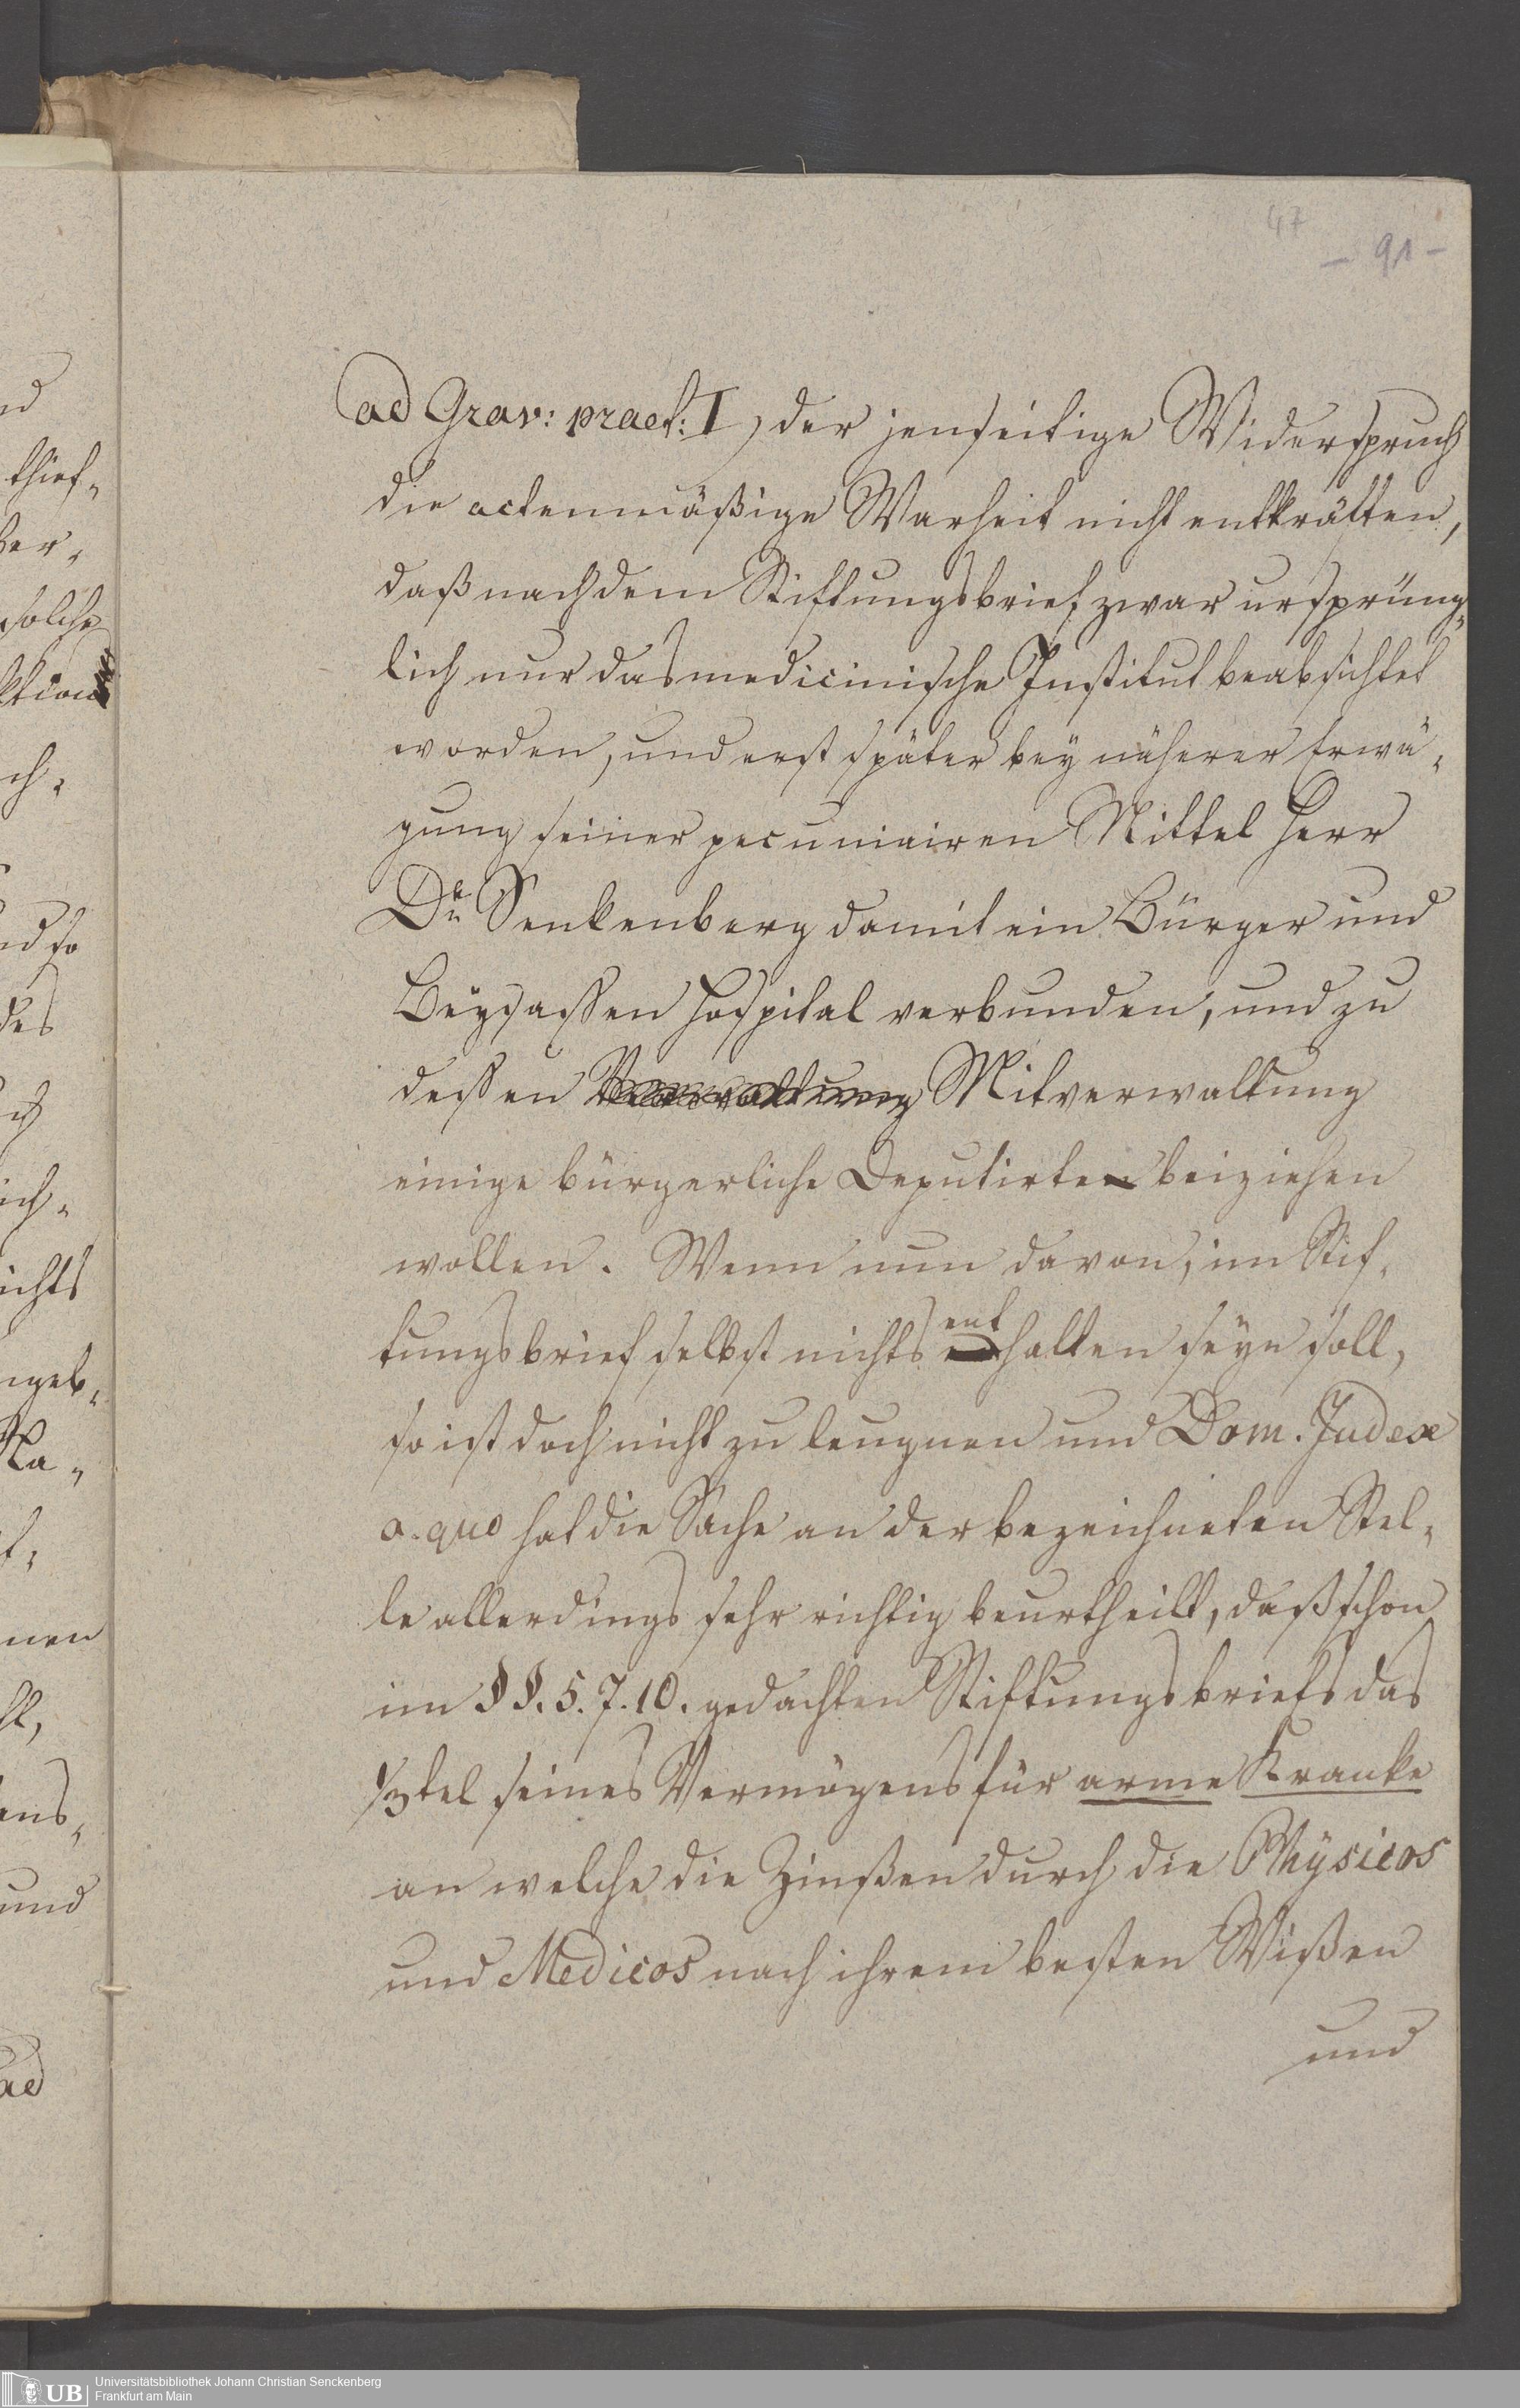 47
- 91 -
ad Grav: praet: I, der jenseitige Widerspruch
die actenmäßige Warheit nicht entkräften,
daß nach dem Stiftungsbrief zwar ursprüng-
lich nur das medicinische Institut beabsichtet
worden, und erst später bey näherer Erwä-
gung seiner pecuniairen Mittel Herr
Dr Senkenberg damit ein Bürger und
Beysassen Hospital verbunden, und zu
dessen Verwaltung Mitverwaltung
einige bürgerliche Deputirten beiziehen
wollen. Wenn nun davon, im Stif-
tungsbrief selbst nichts enthalten seyn soll,
so ist doch nicht zu leugnen und Dom. Judex
a. quo hat die Sache an der bezeichneten Stel-
le allerdings sehr richtig beurtheilt, daß schon
im §§. 5. 7. 10. gedachten Stiftungsbriefs das
1/3tel seines Vermögens für arme Kranke
an welche die Zinßen durch die Physicos
und Medicos nach ihrem besten Wißen
und
UB Universitätsbibliothek Johann Christian Senckenberg
Frankfurt am Main